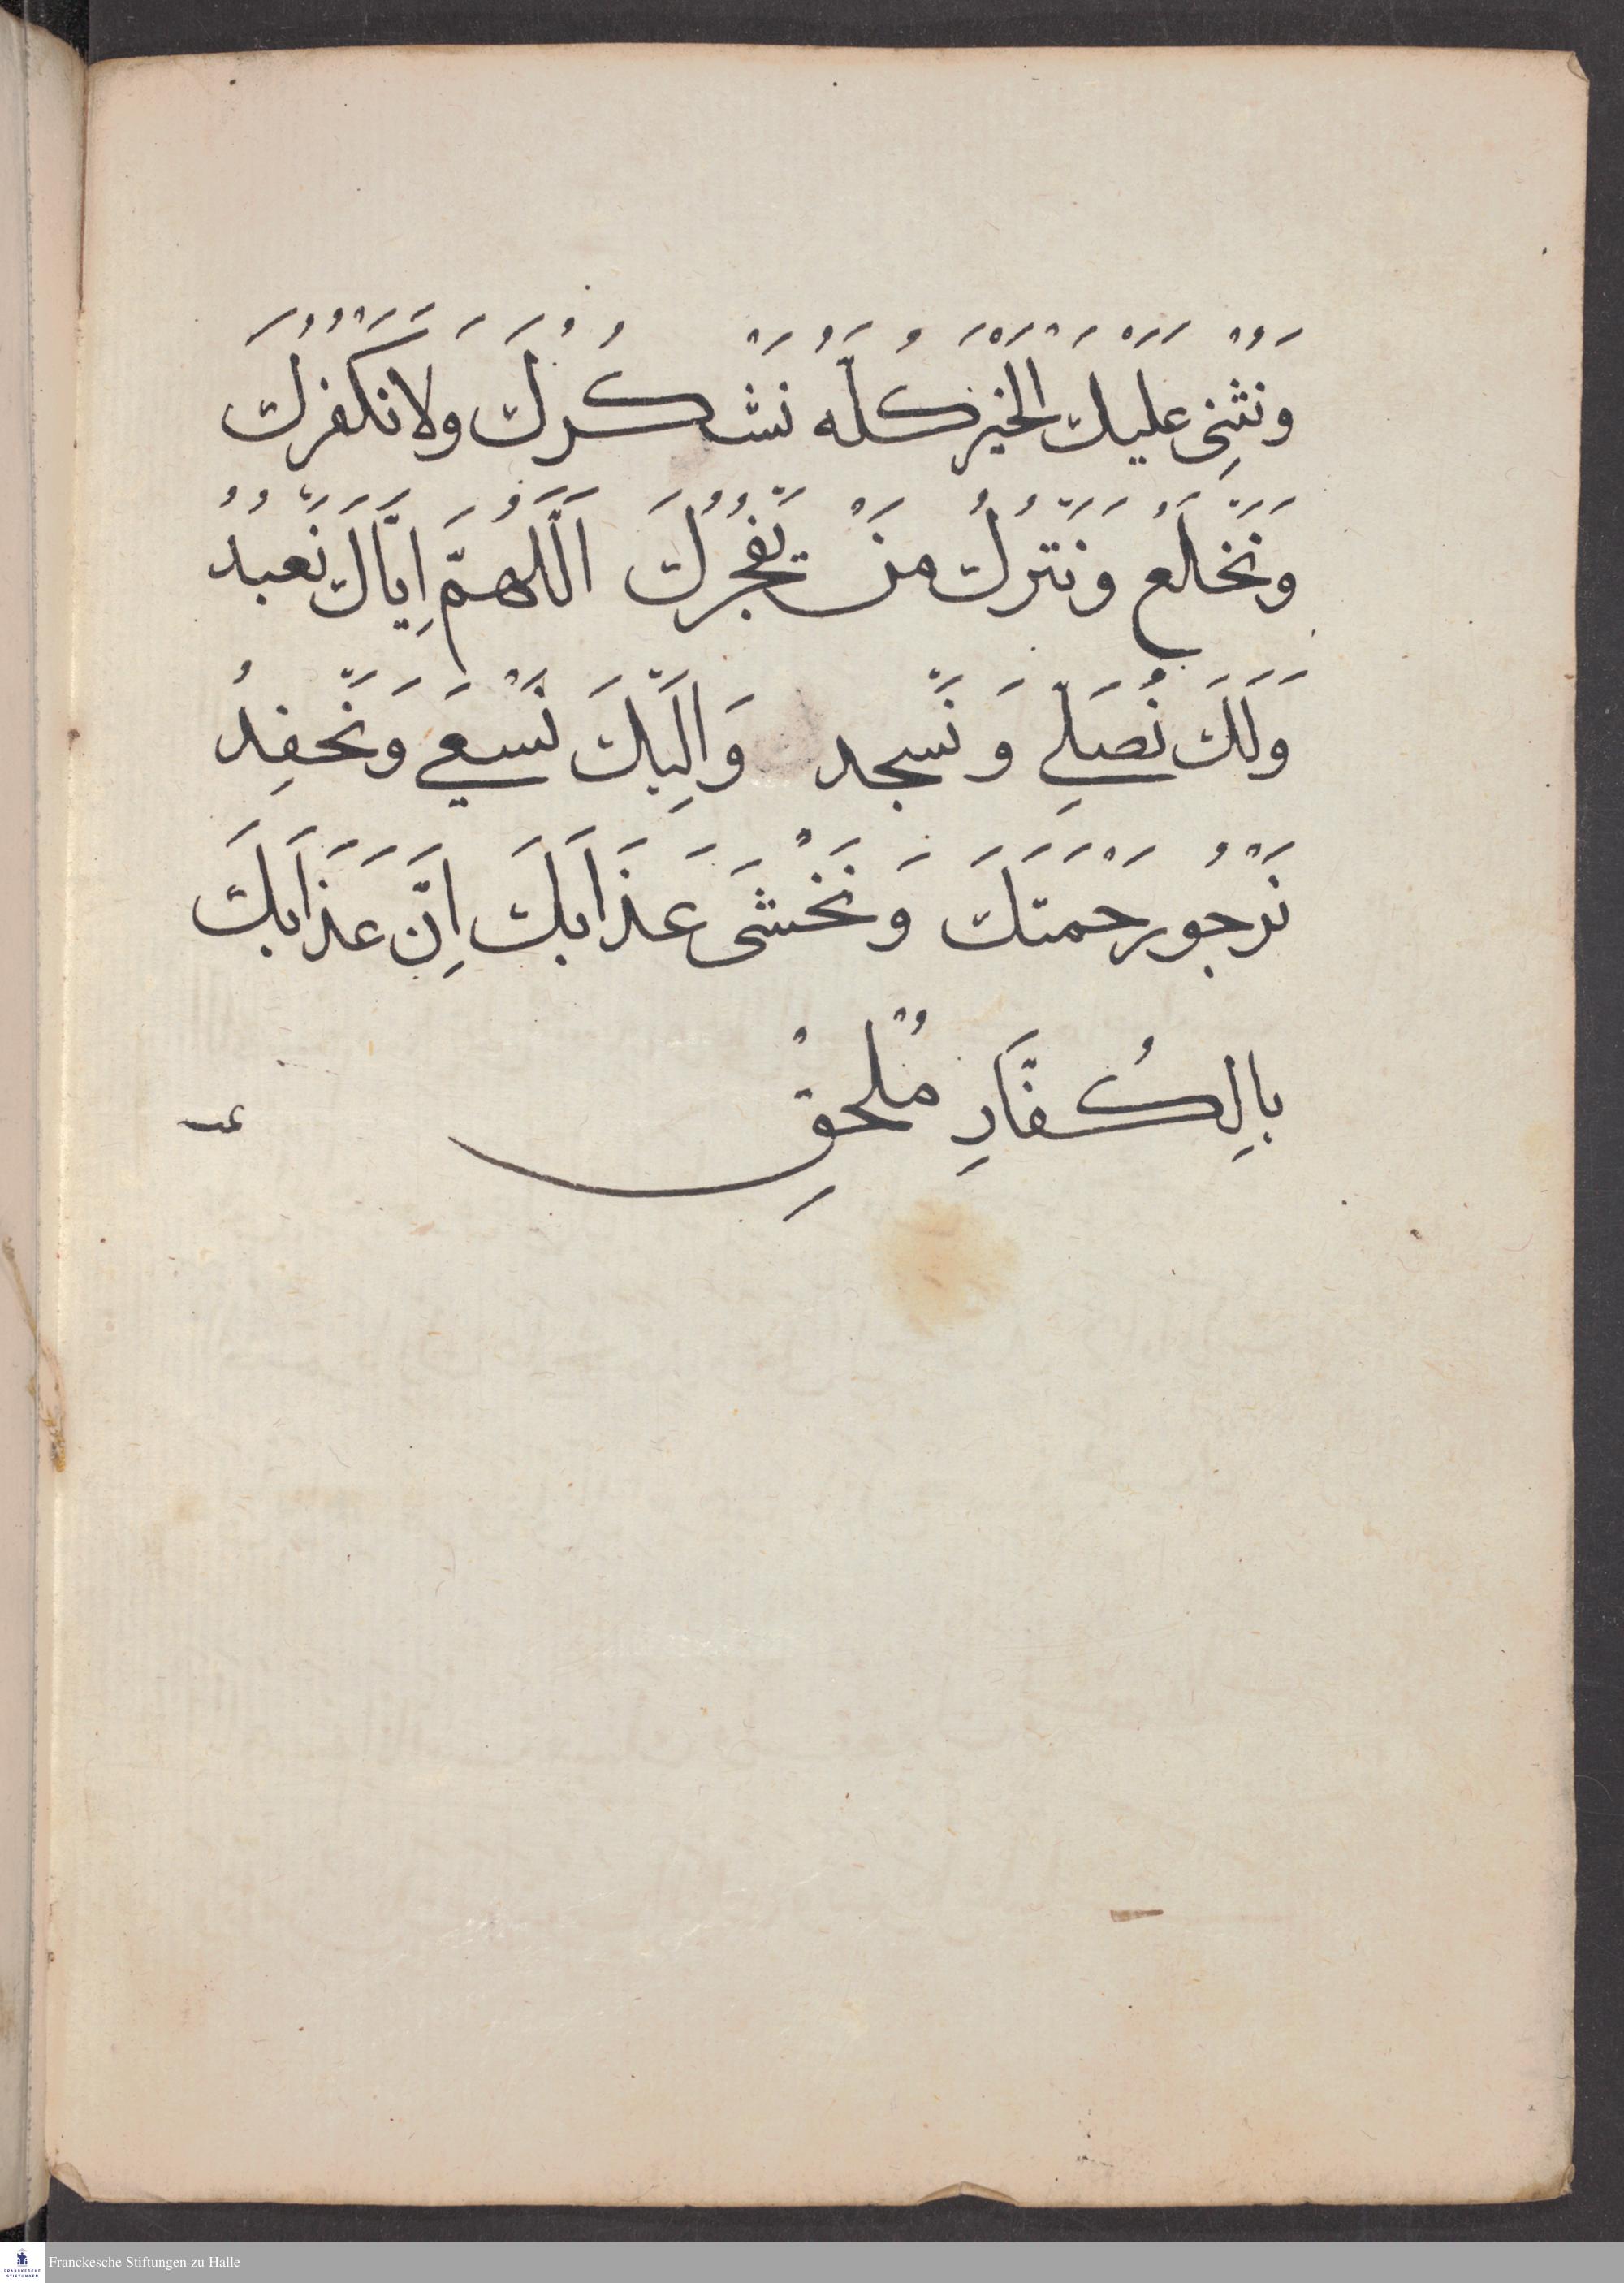 وَنُثْنِى عَلَيْكَ الْخَيْرَ كُلَّهُ نَشْكُرُكَ وَلَا نَكْفُرُكَ
وَنَخْلَعُ وَنَتْرُكُ مَنْ يَفْجُرُكَ اَللّٰهُمَّ اِيَّاكَ نَعْبُدُ
وَلَكَ نُصَلِّى وَنَسْجد وَاِلَيْكَ نَسْعَى وَنَحْفِدُ
نَرْجُو رَحْمَتَكَ وَنَخْشَى عَذَابَكَ اِنَّ عَذَابَكَ
بِالْكُفَّارِ مُلْحِقْ
Franckesche Stiftungen zu Halle
FRANCKESCHE
STIFTUNGEN